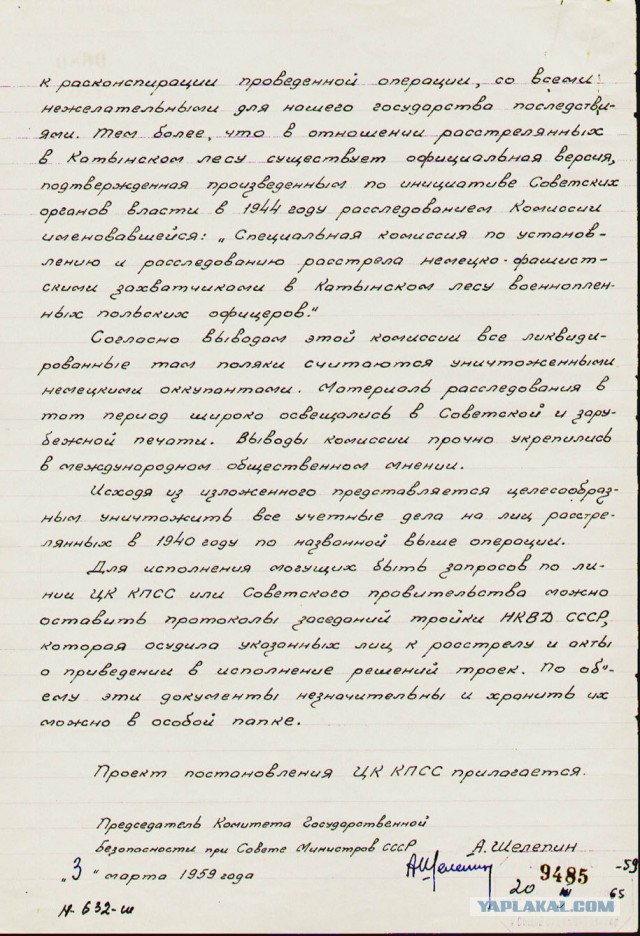 к расконспирации проведенной операции, со всеми
нежелательными для нашего государства последстви-
ями. Тем более, что в отношении расстрелянных
в Катынском лесу существует официальная версия,
подтвержденная произведенным по инициативе Советских
органов власти в 1944 году расследованием Комиссии
именовавшейся: „Специальная комиссия по установ-
лению и расследованию расстрела немецко-фашист-
скими захватчиками в Катынском лесу военноплен-
ных польских офицеров."
Согласно выводам этой комиссии все ликвиди-
рованные там поляки считаются уничтоженными
немецкими оккупантами. Материалы расследования в
тот период широко освещались в Советской и зару-
бежной печати. Выводы комиссии прочно укрепились
в международном общественном мнении.
Исходя из изложенного представляется целесообраз-
ным уничтожить все учетные дела на лиц расстре-
лянных в 1940 году по названной выше операции.
Для исполнения могущих быть запросов по ли-
нии ЦК КПСС или Советского правительства можно
оставить протоколы заседаний тройки НКВД СССР,
которая осудила указанных лиц к расстрелу и акты
о приведении в исполнение решений троек. По об"-
ему эти документы незначительны и хранить их
можно в особой папке.
Проект постановления ЦК КПСС прилагается.
Председатель Комитета Государственной
безопасности при Совете Министров СССР
А. Шелепин
АШелепин
„3" марта 1959 года
9485
-59
20 III 65
Н-632-ш
YAPLAKAL.COM